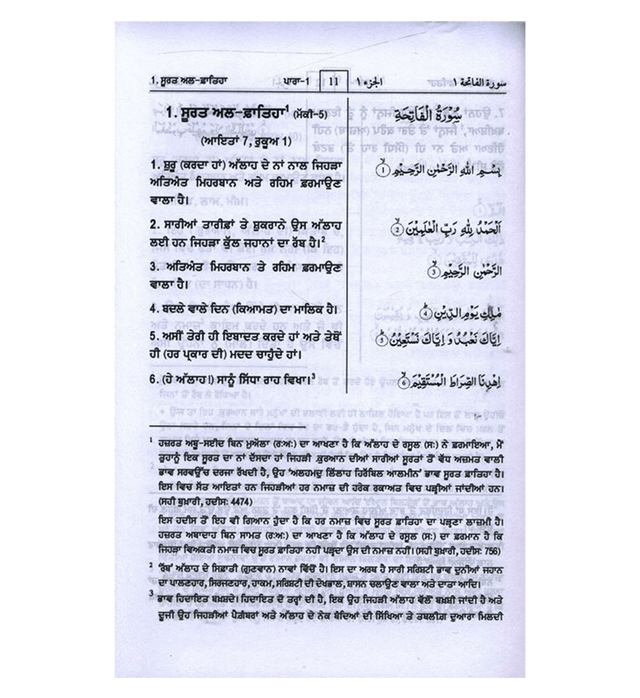 1. ਸੂਰਤ ਅਲ-ਫ਼ਾਤਿਹਾ ਪਾਰਾ-1 11 الجزء ١ سورة الفاتحة ١
1. ਸੂਰਤ ਅਲ-ਫ਼ਾਤਿਹਾ¹ (ਮੱਕੀ-5)
سُوْرَةُ الْفَاتِحَةِ
(ਆਇਤਾਂ 7, ਰੁਕੂਅ 1)
1. ਸ਼ੁਰੂ (ਕਰਦਾ ਹਾਂ) ਅੱਲਾਹ ਦੇ ਨਾਂ ਨਾਲ ਜਿਹੜਾ
ਅਤਿਅੰਤ ਮਿਹਰਬਾਨ ਅਤੇ ਰਹਿਮ ਫ਼ਰਮਾਉਣ
ਵਾਲਾ ਹੈ।
بِسْمِ اللهِ الرَّحْمٰنِ الرَّحِيْمِ ①
2. ਸਾਰੀਆਂ ਤਾਰੀਫ਼ਾਂ ਤੇ ਸ਼ੁਕਰਾਨੇ ਉਸ ਅੱਲਾਹ
ਲਈ ਹਨ ਜਿਹੜਾ ਕੁੱਲ ਜਹਾਨਾਂ ਦਾ ਰੱਬ ਹੈ।²
اَلْحَمْدُ لِلّٰهِ رَبِّ الْعٰلَمِيْنَ ②
3. ਅਤਿਅੰਤ ਮਿਹਰਬਾਨ ਤੇ ਰਹਿਮ ਫ਼ਰਮਾਉਣ
ਵਾਲਾ ਹੈ।
الرَّحْمٰنِ الرَّحِيْمِ ③
4. ਬਦਲੇ ਵਾਲੇ ਦਿਨ (ਕਿਆਮਤ) ਦਾ ਮਾਲਿਕ ਹੈ।
مٰلِكِ يَوْمِ الدِّيْنِ ④
5. ਅਸੀਂ ਤੇਰੀ ਹੀ ਇਬਾਦਤ ਕਰਦੇ ਹਾਂ ਅਤੇ ਤੇਥੋਂ
ਹੀ (ਹਰ ਪ੍ਰਕਾਰ ਦੀ) ਮਦਦ ਚਾਹੁੰਦੇ ਹਾਂ।
اِيَّاكَ نَعْبُدُ وَ اِيَّاكَ نَسْتَعِيْنُ ⑤
6. (ਹੇ ਅੱਲਾਹ!) ਸਾਨੂੰ ਸਿੱਧਾ ਰਾਹ ਵਿਖਾ।³
اِهْدِنَا الصِّرَاطَ الْمُسْتَقِيْمَ ⑥
¹ ਹਜ਼ਰਤ ਅਬੂ-ਸਈਦ ਬਿਨ ਮੁਅੱਲਾ (ਰ:ਅ:) ਦਾ ਆਖਣਾ ਹੈ ਕਿ ਅੱਲਾਹ ਦੇ ਰਸੂਲ (ਸ:) ਨੇ ਫ਼ਰਮਾਇਆ, ਮੈਂ
ਤੁਹਾਨੂੰ ਇਕ ਸੂਰਤ ਦਾ ਨਾਂ ਦੱਸਦਾ ਹਾਂ ਜਿਹੜੀ .ਕੁਰਆਨ ਦੀਆਂ ਸਾਰੀਆਂ ਸੂਰਤਾਂ ਤੋਂ ਵੱਧ ਅਜ਼ਮਤ ਵਾਲੀ
ਭਾਵ ਸਰਵਉੱਚ ਦਰਜਾ ਰੱਖਦੀ ਹੈ, ਉਹ 'ਅਲਹਮਦੁ ਲਿੱਲਾਹ ਹਿਰੱਬਿਲ ਆਲਮੀਨ' ਭਾਵ ਸੂਰਤ ਫ਼ਾਤਿਹਾ ਹੈ।
ਇਸ ਵਿਚ ਸੱਤ ਆਇਤਾਂ ਹਨ ਜਿਹੜੀਆਂ ਹਰ ਨਮਾਜ਼ ਦੀ ਹਰੇਕ ਰਕਾਅਤ ਵਿਚ ਪੜ੍ਹੀਆਂ ਜਾਂਦੀਆਂ ਹਨ।
(ਸਹੀ ਬੁਖ਼ਾਰੀ, ਹਦੀਸ: 4474)
ਇਸ ਹਦੀਸ ਤੋਂ ਇਹ ਵੀ ਗਿਆਨ ਹੁੰਦਾ ਹੈ ਕਿ ਹਰ ਨਮਾਜ਼ ਵਿਚ ਸੂਰਤ ਫ਼ਾਤਿਹਾ ਦਾ ਪੜ੍ਹਣਾ ਲਾਜ਼ਮੀ ਹੈ।
ਹਜ਼ਰਤ ਅਬਾਦਾਹ ਬਿਨ ਸਾਮਤ (ਰ:ਅ:) ਦਾ ਆਖਣਾ ਹੈ ਕਿ ਅੱਲਾਹ ਦੇ ਰਸੂਲ (ਸ:) ਦਾ ਫ਼ਰਮਾਨ ਹੈ ਕਿ
ਜਿਹੜਾ ਵਿਅਕਤੀ ਨਮਾਜ਼ ਵਿਚ ਸੂਰਤ ਫ਼ਾਤਿਹਾ ਨਹੀਂ ਪੜ੍ਹਦਾ ਉਸ ਦੀ ਨਮਾਜ਼ ਨਹੀਂ। (ਸਹੀ ਬੁਖ਼ਾਰੀ, ਹਦੀਸ: 756)
² 'ਰੱਬ' ਅੱਲਾਹ ਦੇ ਸਿਫ਼ਾਤੀ (ਗੁਣਵਾਨ) ਨਾਵਾਂ ਵਿੱਚੋਂ ਹੈ। ਇਸ ਦਾ ਅਰਥ ਹੈ ਸਾਰੀ ਸਰਿਸ਼ਟੀ ਭਾਵ ਦੂਨੀਆਂ ਜਹਾਨ
ਦਾ ਪਾਲਣਹਾਰ, ਸਿਰਜਣਹਾਰ, ਹਾਕਮ, ਸਰਿਸ਼ਟੀ ਦੀ ਦੇਖਭਾਲ, ਸ਼ਾਸਨ ਚਲਾਉਣ ਵਾਲਾ ਅਤੇ ਦਾਤਾ ਆਦਿ।
³ ਭਾਵ ਹਿਦਾਇਤ ਬਖ਼ਸ਼ਦੇ। ਹਿਦਾਇਤ ਦੋ ਤਰ੍ਹਾਂ ਦੀ ਹੈ, ਇਕ ਉਹ ਜਿਹੜੀ ਅੱਲਾਹ ਵੱਲੋਂ ਬਖ਼ਸ਼ੀ ਜਾਂਦੀ ਹੈ ਅਤੇ
ਦੂਜੀ ਉਹ ਜਿਹੜੀਆਂ ਪੈਗ਼ੰਬਰਾਂ ਅਤੇ ਅੱਲਾਹ ਦੇ ਨੇਕ ਬੰਦਿਆਂ ਦੀ ਸਿੱਖਿਆ ਤੇ ਤਬਲੀਗ਼ ਦੁਆਰਾ ਮਿਲਦੀ